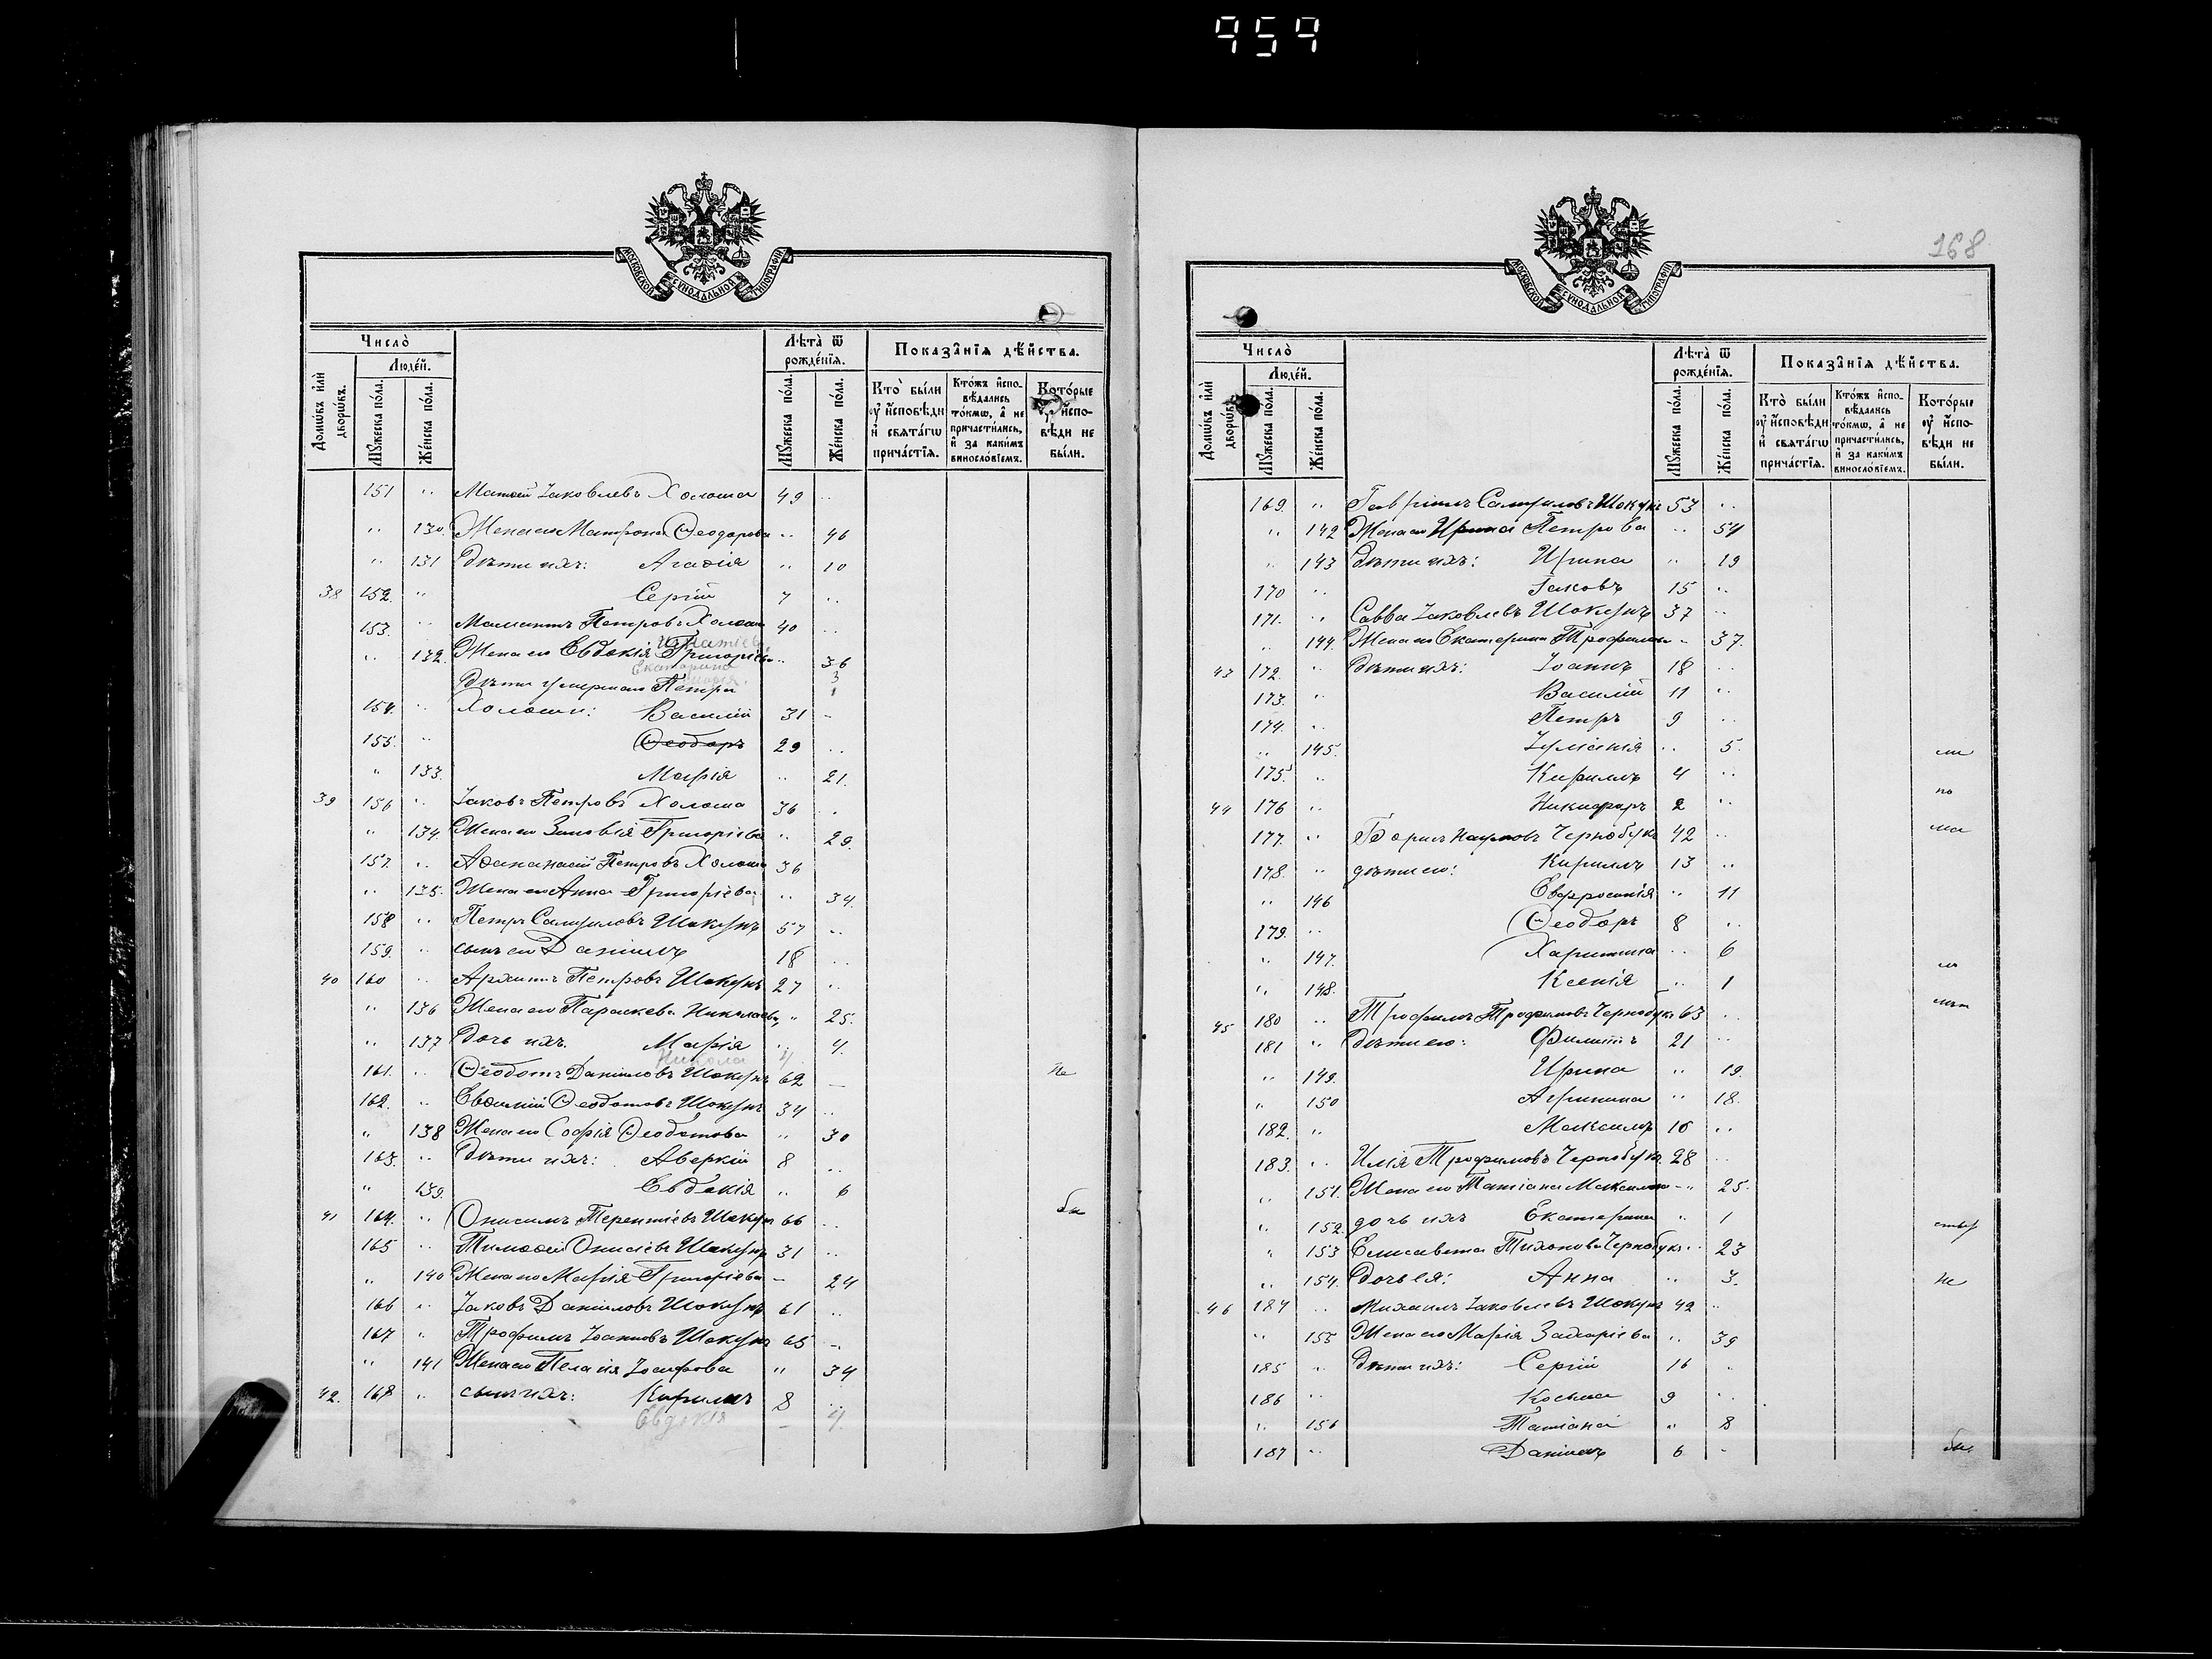 959
МОСКОВСКОЙ СѴНОДАЛЬНОЙ ТИПОГРАФІИ
Число̀
Лѣта̀ ѿ рожде́нїя.
Показа̑нїя дѣ́йства.
Домѡ́въ и҆лѝ дворѡ́въ.
Люде́й.
Мꙋ́жеска по́ла.
Же́нска по́ла.
Мꙋ́жеска по́ла.
Же́нска по́ла.
Кто̀ бы́ли ᲂу҆ и҆сповѣ́ди и҆ свята́гѡ прича́стїя.
Кто́жъ и҆сповѣ́дались то́кмѡ, а҆ не причасти́лись, и҆ за каки́мъ виносло́вїемъ.
Кото́рые ᲂу҆ и҆сповѣ́ди не бы́ли.
151 " Матѳей Іаковлевъ Холоша 49 "
" 130. Жена его Матрона Ѳеодорова " 46
" 131 Дѣти ихъ: Агаѳія " 10
38 152. " Сергій 7 "
153. " Мамантъ Петровъ Холоша 40 "
Игнатіева
" 132. Жена его Евдокія Григоріева " 36
Екатерина 3
Марія. 1
Дѣти умершаго Петра
154. " Холоши: Василій 31 -
155. " Ѳеодоръ 29 "
" 133. Марія " 21.
39 156 " Іаковъ Петровъ Холоша 36 "
" 134. Жена его Зиновія Григоріева " 29.
157. " Аѳанасій Петровъ Холоша 36
" 135. Жена его Анна Григоріева " 34.
158 " Петръ Самуиловъ Шокунъ 57 "
159. " сынъ его Даніилъ 18 "
40 160 " Архиппъ Петровъ Шокунъ 27 "
" 136 Жена его Параскева Николаева " 25.
" 137 Дочь ихъ. Марія " 4.
Никола 4
161. " Ѳеодотъ Даніиловъ Шокунъ 62 - Не
162. " Евѳимій Ѳеодотовъ Шокунъ 34 "
" 138 Жена его Софія Ѳеодотова " 30
163. " Дѣти ихъ: Аверкій 8 "
" 139. Евдокія " 6
41 164. " Онисимъ Терентіевъ Шокунъ 66 " бы
165 " Тимоѳей Онисіевъ Шокунъ 31 "
" 140 Жена его Марія Григоріева - 24
166 " Іаковъ Даніиловъ Шокунъ 61 "
167 " Трофимъ Іоанновъ Шокунъ 65 "
" 141 Жена его Пелагія Іосифова " 34
42. 168 " сынъ ихъ: Кириллъ 8 "
Евдокія - 4.
168
МОСКОВСКОЙ СѴНОДАЛЬНОЙ ТИПОГРАФІИ
Число̀
Лѣта̀ ѿ рожде́нїя.
Показа̑нїя дѣ́йства.
Домѡ́въ и҆лѝ дворѡ́въ.
Люде́й.
Мꙋ́жеска по́ла.
Же́нска по́ла.
Мꙋ́жеска по́ла.
Же́нска по́ла.
Кто̀ бы́ли ᲂу҆ и҆сповѣ́ди и҆ свята́гѡ прича́стїя.
Кто́жъ и҆сповѣ́дались то́кмѡ, а҆ не причасти́лись, и҆ за каки́мъ виносло́вїемъ.
Кото́рые ᲂу҆ и҆сповѣ́ди не бы́ли.
169. " Гавріилъ Самуиловъ Шокунъ 53 "
" 142 Жена его Ирина Петрова " 54
" 143 Дѣти ихъ: Ирина " 19
170 " Іаковъ 15 "
171. " Савва Іаковлевъ Шокунъ 37 "
" 144. Жена его Екатерина Трофимова " 37.
43 172. " Дѣти ихъ: Іоаннъ 18 "
173. " Василій 11 "
174. " Петръ 9 "
" 145. Іуліанія " 5.
175. " Кириллъ 4 "
44 176 " Никифоръ 2 " по
177. " Борисъ Наумовъ Чернобукъ 42 "
178. " дѣти его: Кириллъ 13 "
" 146 Евфросинія " 11
179. " Ѳеодоръ 8 "
" 147. Харитина " 6
" 148. Ксенія " 1
45 180 " Трофимъ Трофимовъ Чернобукъ 63 "
181 " Дѣти его: Филиппъ 21 "
" 149. Ирина " 19.
" 150 Агрипина " 18.
182. " Максимъ 16 "
183. " Илія Трофимовъ Чернобукъ. 28 "
" 151. Жена его Татіана Максимова " 25.
" 152 дочь ихъ Екатерина " 1
" 153 Елисавета Тихонова Чернобукъ " 23
" 154. Дочь ея: Анна " 3. Не
46 184 " Михаилъ Іаковлевъ Шокунъ 42 "
" 155 Жена его Марія Захаріева " 39
185 " Дѣти ихъ: Сергій 16 "
186 " Косьма 9 "
" 156 Татіана " 8
187 " Даніилъ 6 " бы